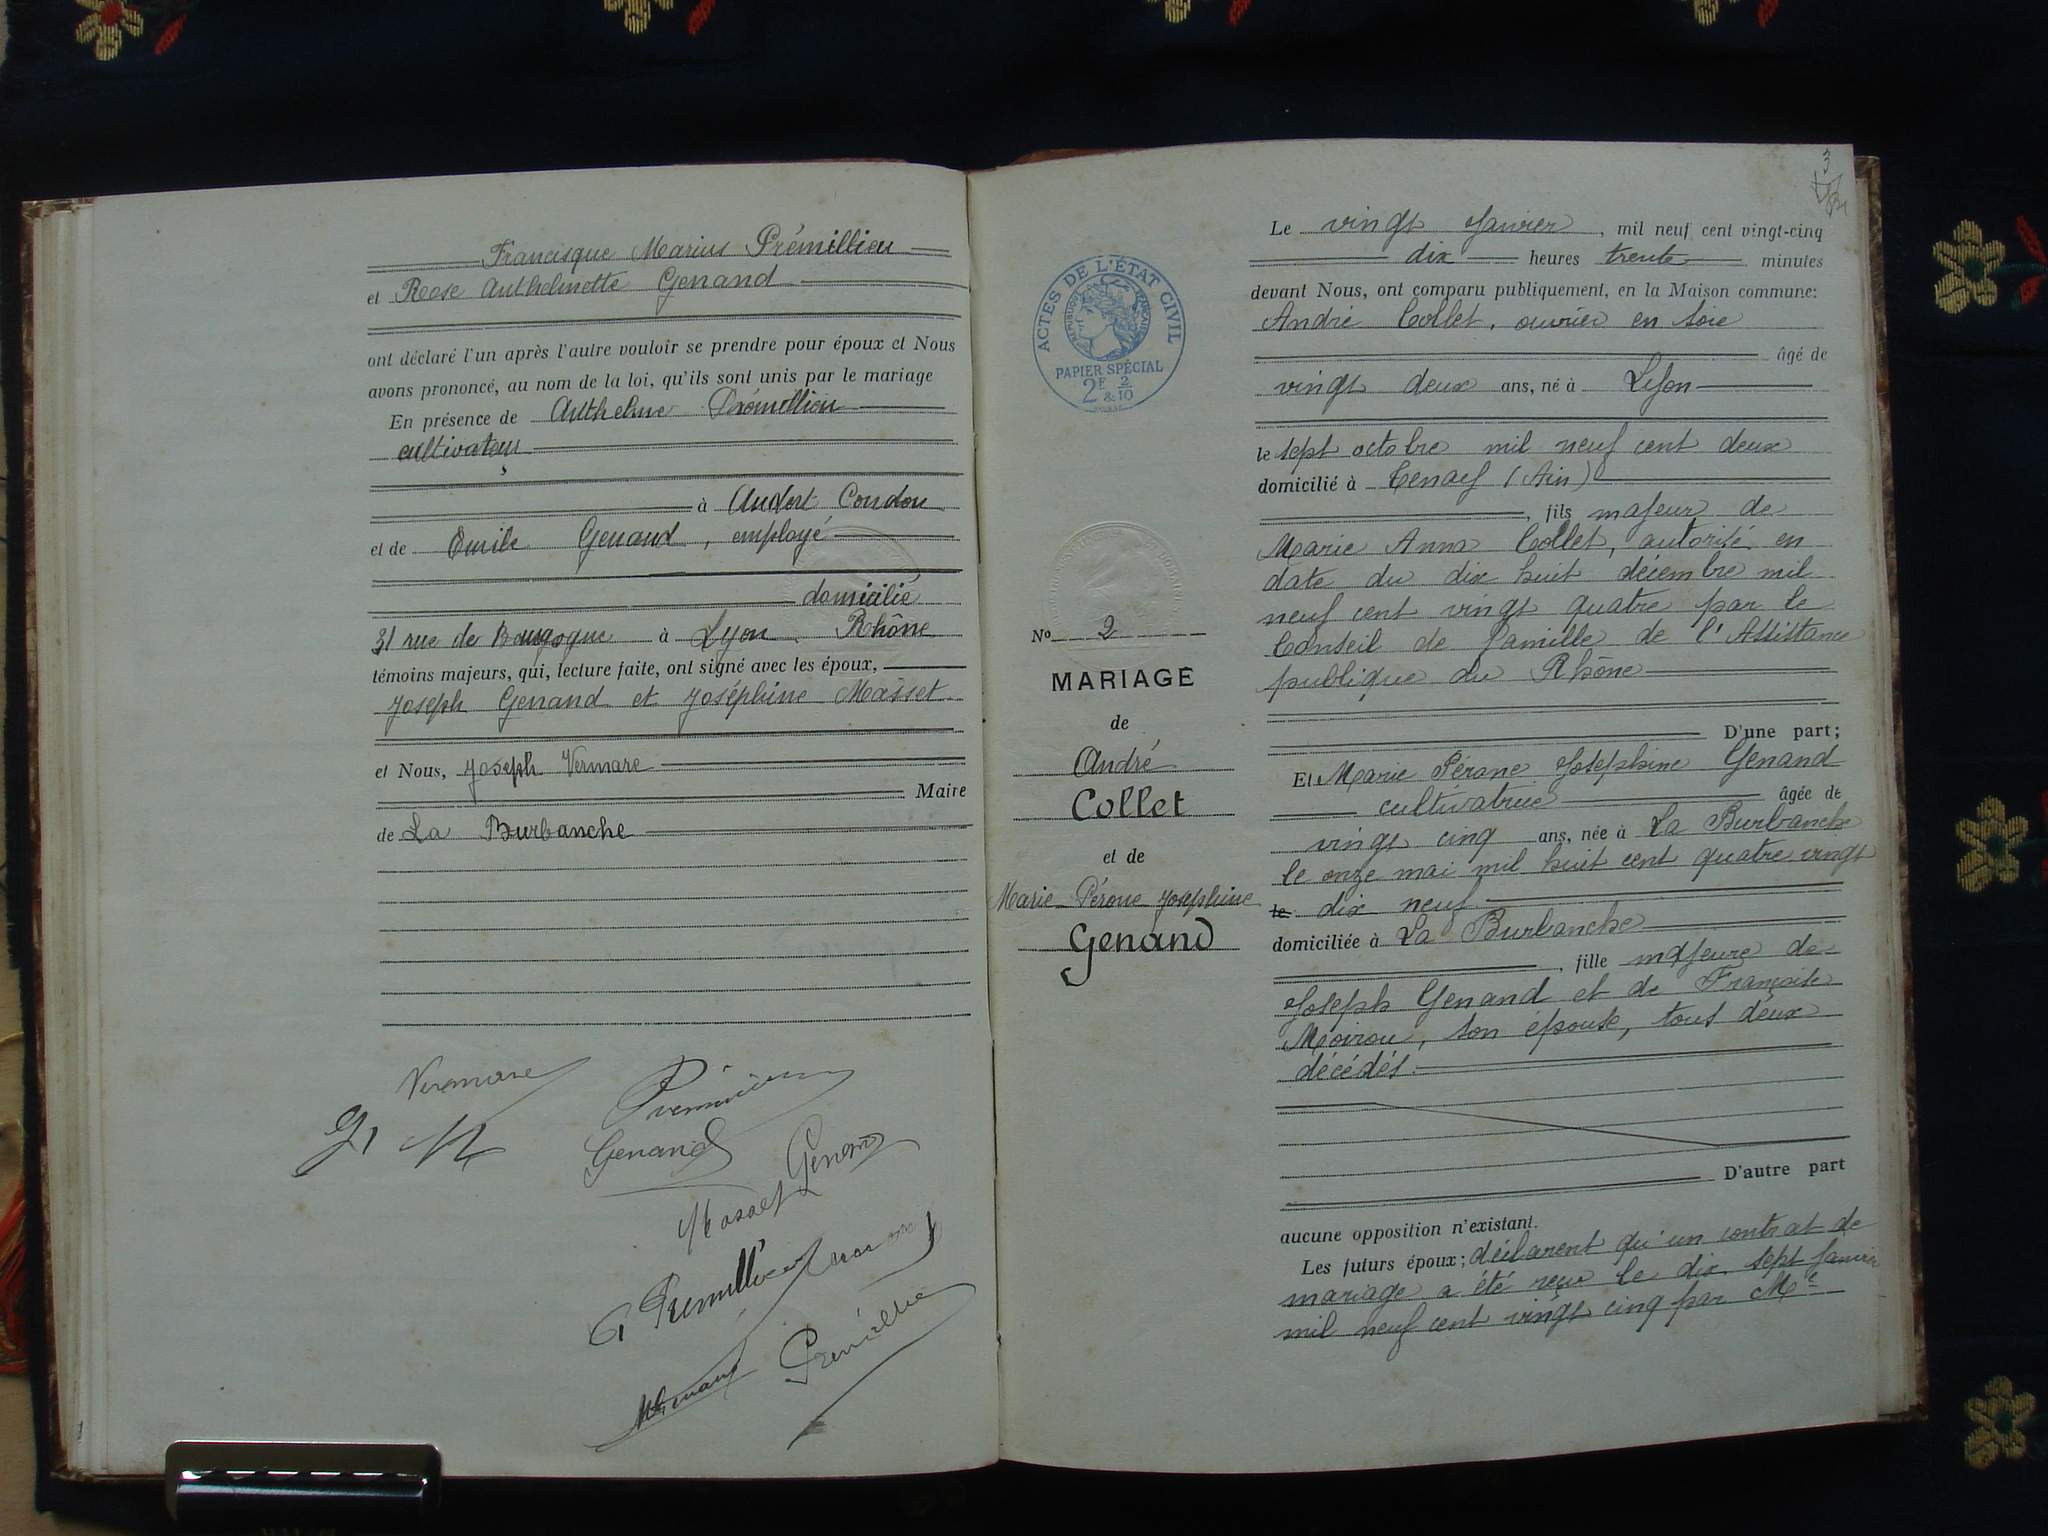 Francisque Marius Prémillieu
et Rose Anthelmette Genand
ont déclaré l'un après l'autre vouloir se prendre pour époux et Nous
avons prononcé, au nom de la loi, qu'ils sont unis par le mariage
En présence de Anthelme Prémillieu
cultivateur
à Andert Condon
et de Emile Genand, employé
domicilié
31 rue de Bourgogne à Lyon Rhône
témoins majeurs, qui, lecture faite, ont signé avec les époux,
Joseph Genand et Joséphine Masset
et Nous, Joseph Vermare
Maire
de La Burbanche
Vermare
Genand
Genand
Masset
3
ACTES DE L'ÉTAT CIVIL
RÉPUBLIQUE FRANÇAISE
PAPIER SPÉCIAL
2F & 2/10
No 2
MARIAGE
de
André
Collet
et de
Marie Pérone Josephine
Genand
Le vingt Janvier, mil neuf cent vingt-cinq
dix heures trente minutes
devant Nous, ont comparu publiquement, en la Maison commune:
André Collet, ouvrier en soie
âgé de
vingt deux ans, né à Lyon
le sept octobre mil neuf cent deux
domicilié à Tenay (Ain)
, fils majeur de
Marie Anna Collet, autorisé en
date du dix huit décembre mil
neuf cent vingt quatre par le
Conseil de famille de l'Assistance
publique du Rhône
D'une part;
Et Marie Pérone Josephine Genand
cultivatrice âgée de
vingt cinq ans, née à La Burbanche
le onze mai mil huit cent quatre vingt
le dix neuf
domiciliée à La Burbanche
, fille majeure de
Joseph Genand et de Françoise
Moirou, son épouse, tous deux
décédés.
D'autre part
aucune opposition n'existant.
Les futurs époux; déclarent qu'un contrat de
mariage a été reçu le dix sept Janvier
mil neuf cent vingt cinq par Me